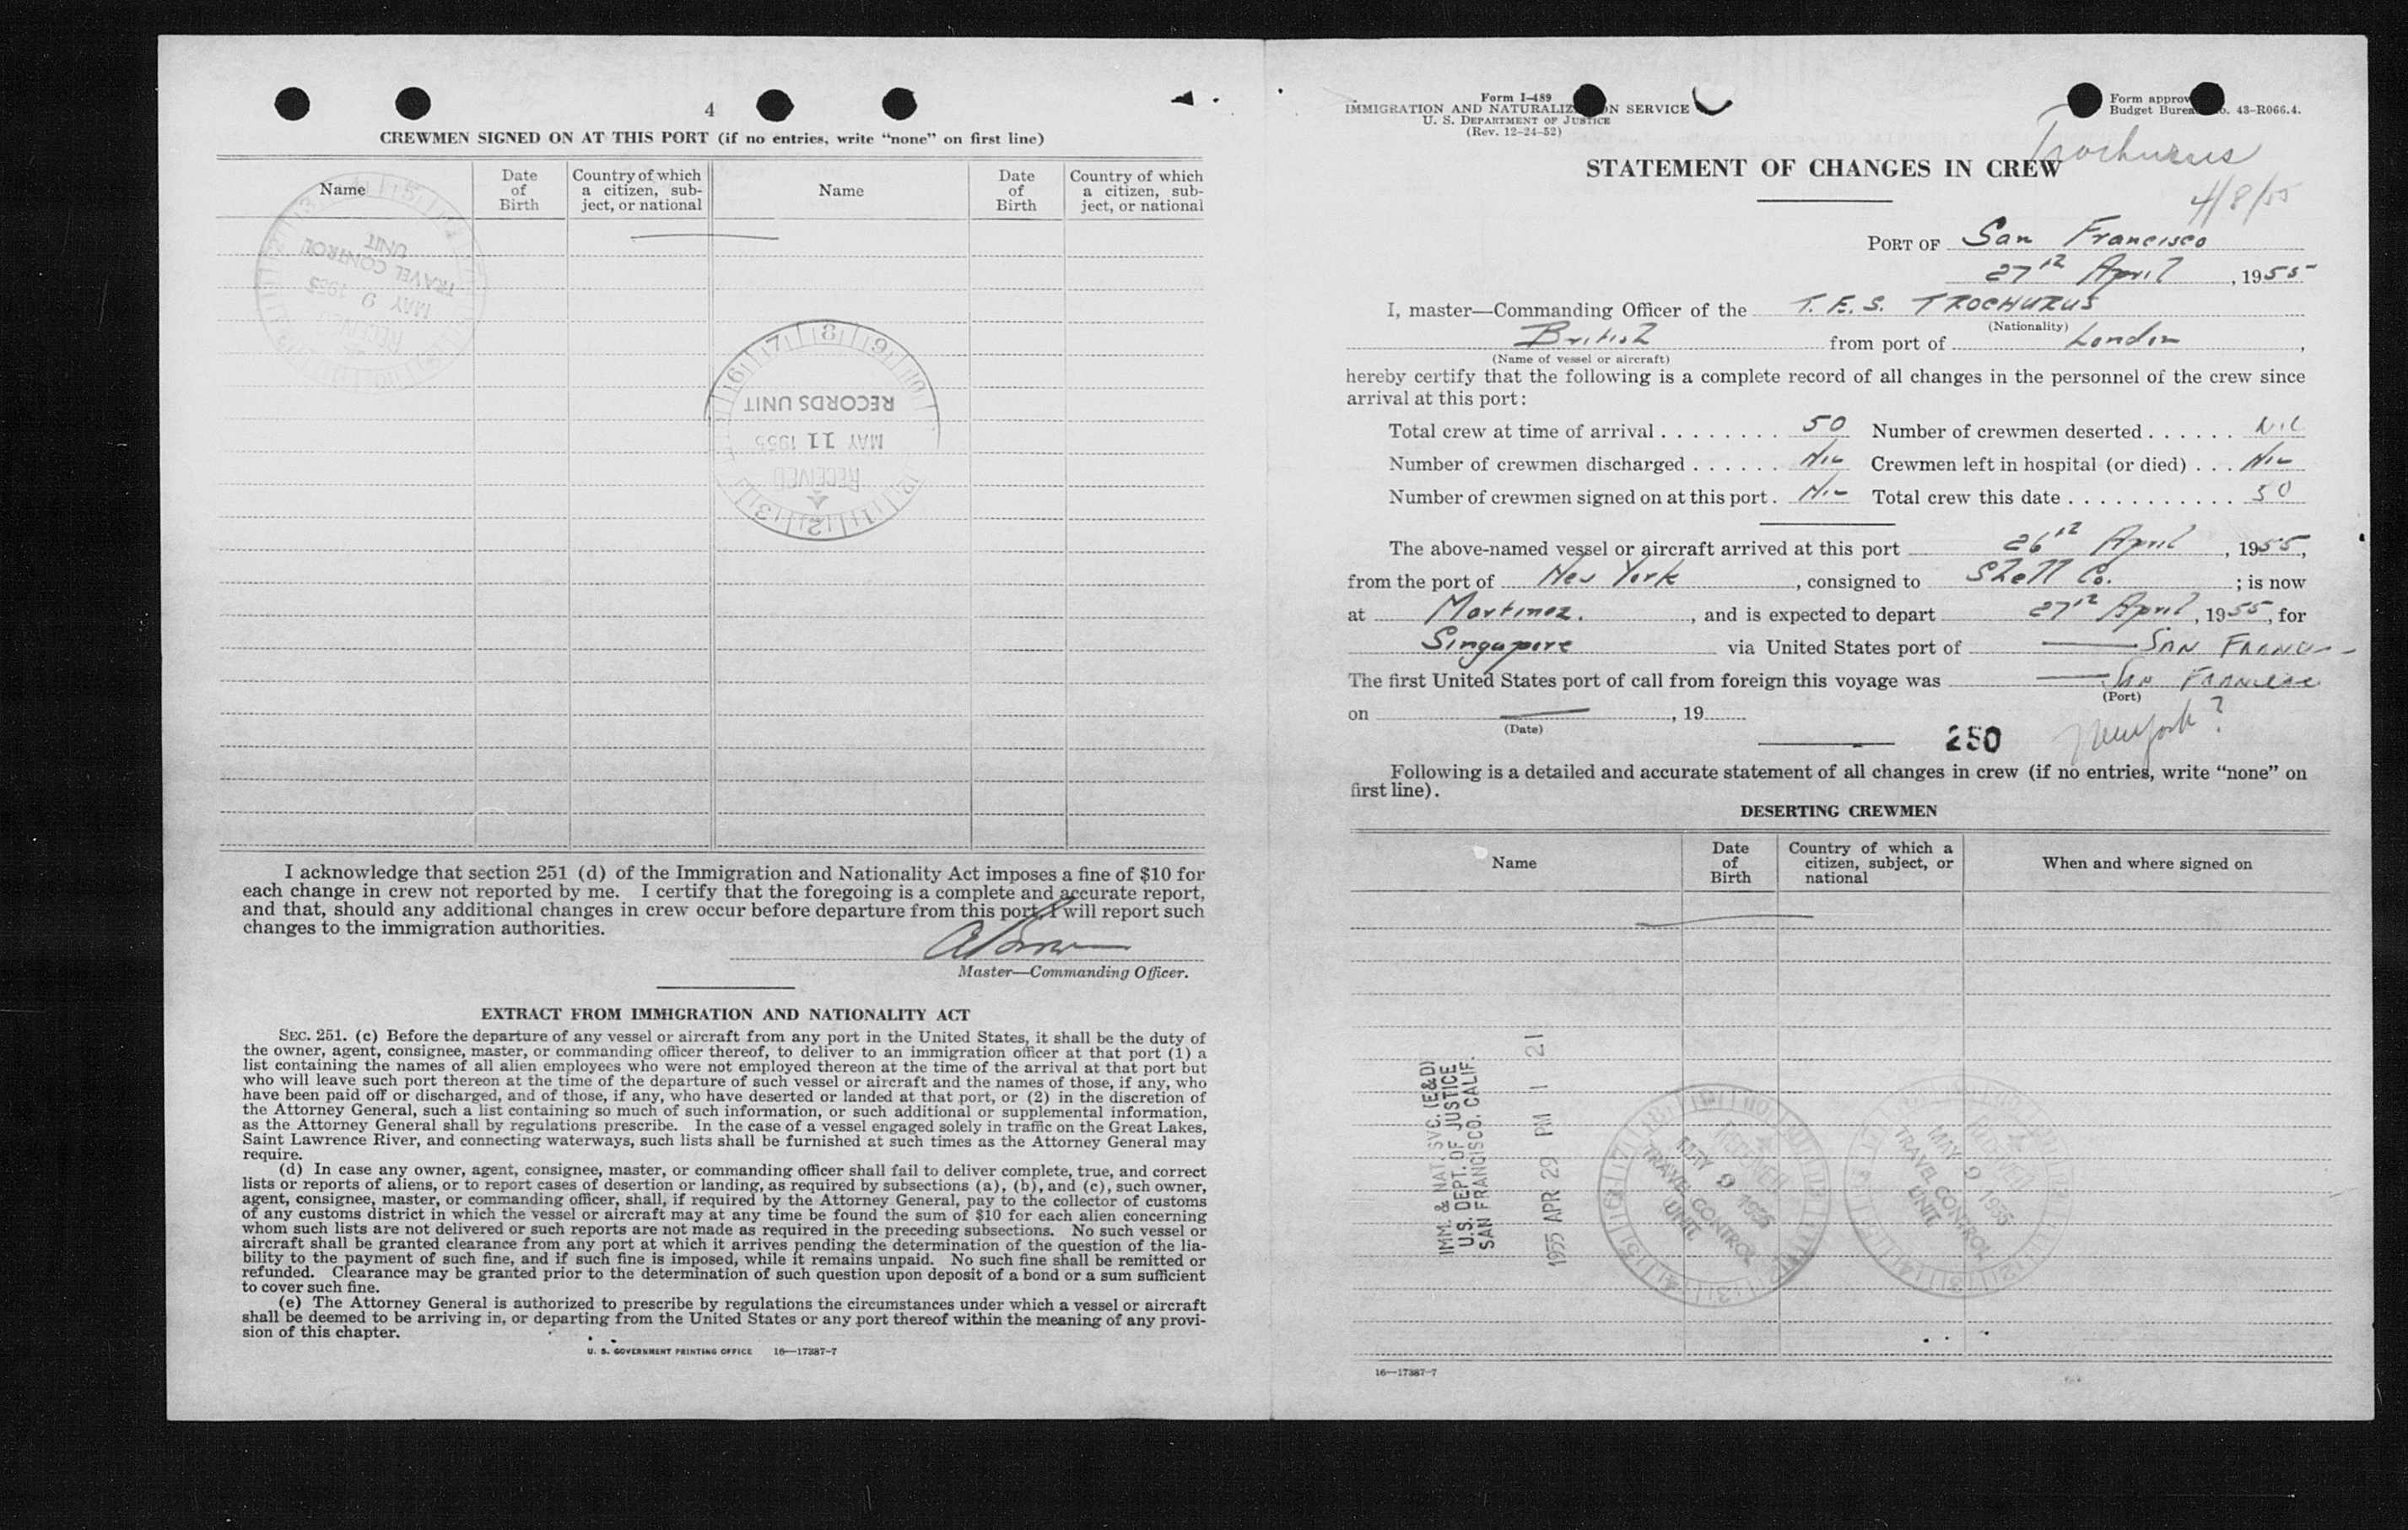 4
CREWMEN SIGNED ON AT THIS PORT (if no entries, write “none” on first line)
Name
Date of Birth
Country of which a citizen, subject, or national
Name
Date of Birth
Country of which a citizen, subject, or national
TRAVEL CONTROL
UNIT
MAY 9 1955
RECEIVED
RECORDS UNIT
MAY 11 1955
RECEIVED
I acknowledge that section 251 (d) of the Immigration and Nationality Act imposes a fine of $10 for
each change in crew not reported by me. I certify that the foregoing is a complete and accurate report,
and that, should any additional changes in crew occur before departure from this port, I will report such
changes to the immigration authorities.
Master—Commanding Officer.
EXTRACT FROM IMMIGRATION AND NATIONALITY ACT
SEC. 251. (c) Before the departure of any vessel or aircraft from any port in the United States, it shall be the duty of
the owner, agent, consignee, master, or commanding officer thereof, to deliver to an immigration officer at that port (1) a
list containing the names of all alien employees who were not employed thereon at the time of the arrival at that port but
who will leave such port thereon at the time of the departure of such vessel or aircraft and the names of those, if any, who
have been paid off or discharged, and of those, if any, who have deserted or landed at that port, or (2) in the discretion of
the Attorney General, such a list containing so much of such information, or such additional or supplemental information,
as the Attorney General shall by regulations prescribe. In the case of a vessel engaged solely in traffic on the Great Lakes,
Saint Lawrence River, and connecting waterways, such lists shall be furnished at such times as the Attorney General may
require.
(d) In case any owner, agent, consignee, master, or commanding officer shall fail to deliver complete, true, and correct
lists or reports of aliens, or to report cases of desertion or landing, as required by subsections (a), (b), and (c), such owner,
agent, consignee, master, or commanding officer, shall, if required by the Attorney General, pay to the collector of customs
of any customs district in which the vessel or aircraft may at any time be found the sum of $10 for each alien concerning
whom such lists are not delivered or such reports are not made as required in the preceding subsections. No such vessel or
aircraft shall be granted clearance from any port at which it arrives pending the determination of the question of the lia-
bility to the payment of such fine, and if such fine is imposed, while it remains unpaid. No such fine shall be remitted or
refunded. Clearance may be granted prior to the determination of such question upon deposit of a bond or a sum sufficient
to cover such fine.
(e) The Attorney General is authorized to prescribe by regulations the circumstances under which a vessel or aircraft
shall be deemed to be arriving in, or departing from the United States or any port thereof within the meaning of any provi-
sion of this chapter.
U. S. GOVERNMENT PRINTING OFFICE 16—17387-7
Form I-489
IMMIGRATION AND NATURALIZ N SERVICE
U. S. DEPARTMENT OF JUSTICE
(Rev. 12-24-52)
Form approv
Budget Burea o. 43-R066.4.
Trochurus
4/8/55
STATEMENT OF CHANGES IN CREW
PORT OF San Francisco
27th April, 1955
I, master—Commanding Officer of the T.E.S. TROCHURUS
(Nationality)
British from port of London,
(Name of vessel or aircraft)
hereby certify that the following is a complete record of all changes in the personnel of the crew since
arrival at this port:
Total crew at time of arrival 50 Number of crewmen deserted Nil
Number of crewmen discharged Nil Crewmen left in hospital (or died) Nil
Number of crewmen signed on at this port. Nil Total crew this date 50
The above-named vessel or aircraft arrived at this port 26th April, 1955,
from the port of New York, consigned to Shell Co.; is now
at Martinez., and is expected to depart 27th April, 1955, for
Singapore via United States port of — SAN FRANC
The first United States port of call from foreign this voyage was — San Francisco
(Port)
on —, 19
(Date)
250 New York?
Following is a detailed and accurate statement of all changes in crew (if no entries, write “none” on
first line).
DESERTING CREWMEN
Name
Date of Birth
Country of which a citizen, subject, or national
When and where signed on
IMM. & NAT. SVC. (E&D)
U.S. DEPT. OF JUSTICE
SAN FRANCISCO. CALIF.
1955 APR 29 PM 1 21
RECEIVED
MAY 9 1955
TRAVEL CONTROL
UNIT
RECEIVED
MAY 9 1955
TRAVEL CONTROL
UNIT
16—17387-7